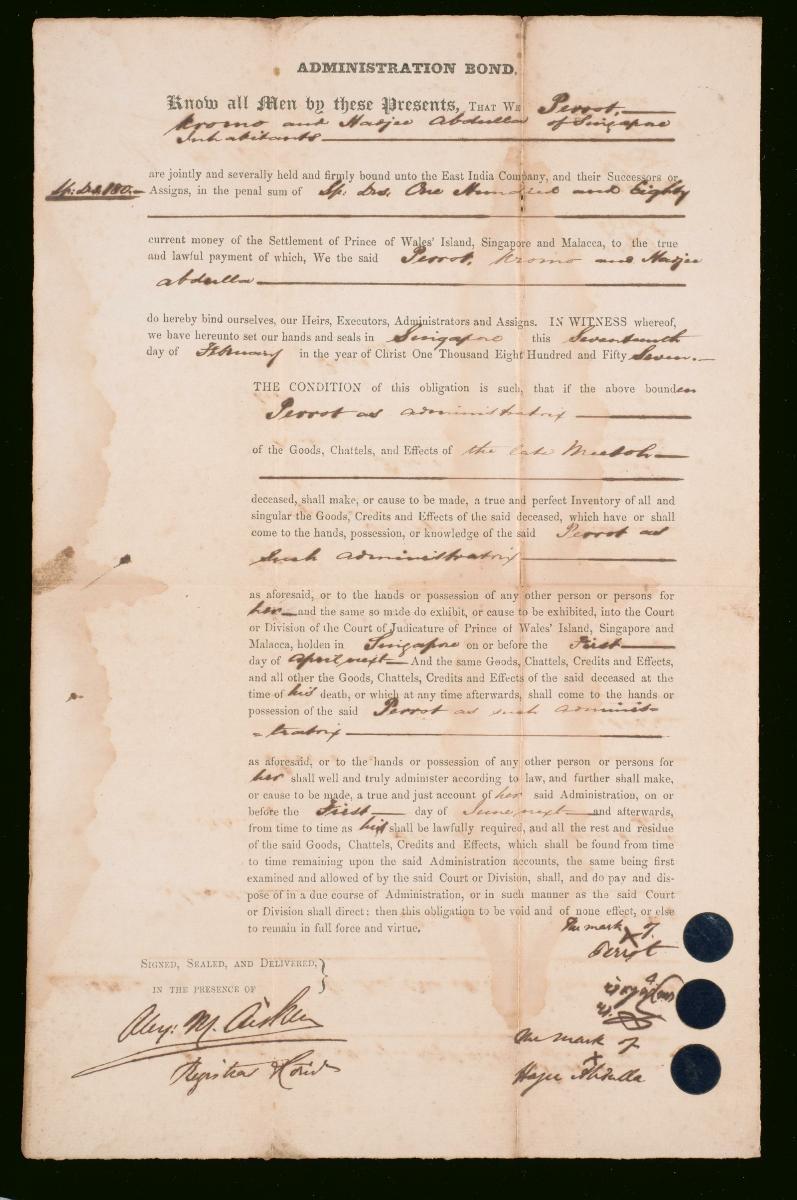 ADMINISTRATION BOND.
Know all Men by these Presents, THAT WE Perrot,
Kromo and Hadjee Abdulla of Singapore
Inhabitants
are jointly and severally held and firmly bound unto the East India Company, and their Successors or
Sp: Drs 180.- Assigns, in the penal sum of Sp: Drs. One Hundred and Eighty
current money of the Settlement of Prince of Wales' Island, Singapore and Malacca, to the true
and lawful payment of which, We the said Perrot, Kromo and Hadjee
Abdulla
do hereby bind ourselves, our Heirs, Executors, Administrators and Assigns. IN WITNESS whereof,
we have hereunto set our hands and seals in Singapore this Seventeenth
day of February in the year of Christ One Thousand Eight Hundred and Fifty Seven.
THE CONDITION of this obligation is such, that if the above bounden
Perrot as administratrix
of the Goods, Chattels, and Effects of the late
deceased, shall make, or cause to be made, a true and perfect Inventory of all and
singular the Goods, Credits and Effects of the said deceased, which have or shall
come to the hands, possession, or knowledge of the said Perrot as
such administratrix
as aforesaid, or to the hands or possession of any other person or persons for
her and the same so made do exhibit, or cause to be exhibited, into the Court
or Division of the Court of Judicature of Prince of Wales' Island, Singapore and
Malacca, holden in Singapore on or before the First
day of April next And the same Goods, Chattels, Credits and Effects,
and all other the Goods, Chattels, Credits and Effects of the said deceased at the
time of his death, or which at any time afterwards, shall come to the hands or
possession of the said Perrot as such adminis-
-tratrix
as aforesaid, or to the hands or possession of any other person or persons for
her shall well and truly administer according to law, and further shall make,
or cause to be made, a true and just account of her said Administration, on or
before the First day of June next and afterwards,
from time to time as shall be lawfully required, and all the rest and residue
of the said Goods, Chattels, Credits and Effects, which shall be found from time
to time remaining upon the said Administration accounts, the same being first
examined and allowed of by the said Court or Division, shall, and do pay and dis-
pose of in a due course of Administration, or in such manner as the said Court
or Division shall direct: then this obligation to be void and of none effect, or else
to remain in full force and virtue.
The mark of
X
Perrot
SIGNED, SEALED, AND DELIVERED,
IN THE PRESENCE OF
Alex: M. Aitken
Registrar
The mark of
X
Hajee Abdulla